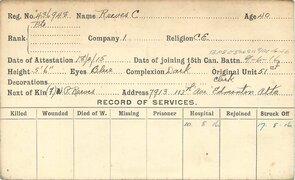 Reg. No. 436948 Name Reeves C Age 40
Rank Pte Company 1. Religion C.E.
Date of Attestation 18/9/15 Date of joining 15th Can. Battn. 9-6-16
Height 5'6" Eyes Blue Complexion Dark Original Unit 51st
Decorations Clerk
Next of Kin Reeves Address 7913 112th Ave Edmonton Alta
RECORD OF SERVICES.
Killed Wounded Died of W. Missing Prisoner Hospital Rejoined Struck Off
10. 8 16 17. 8 16